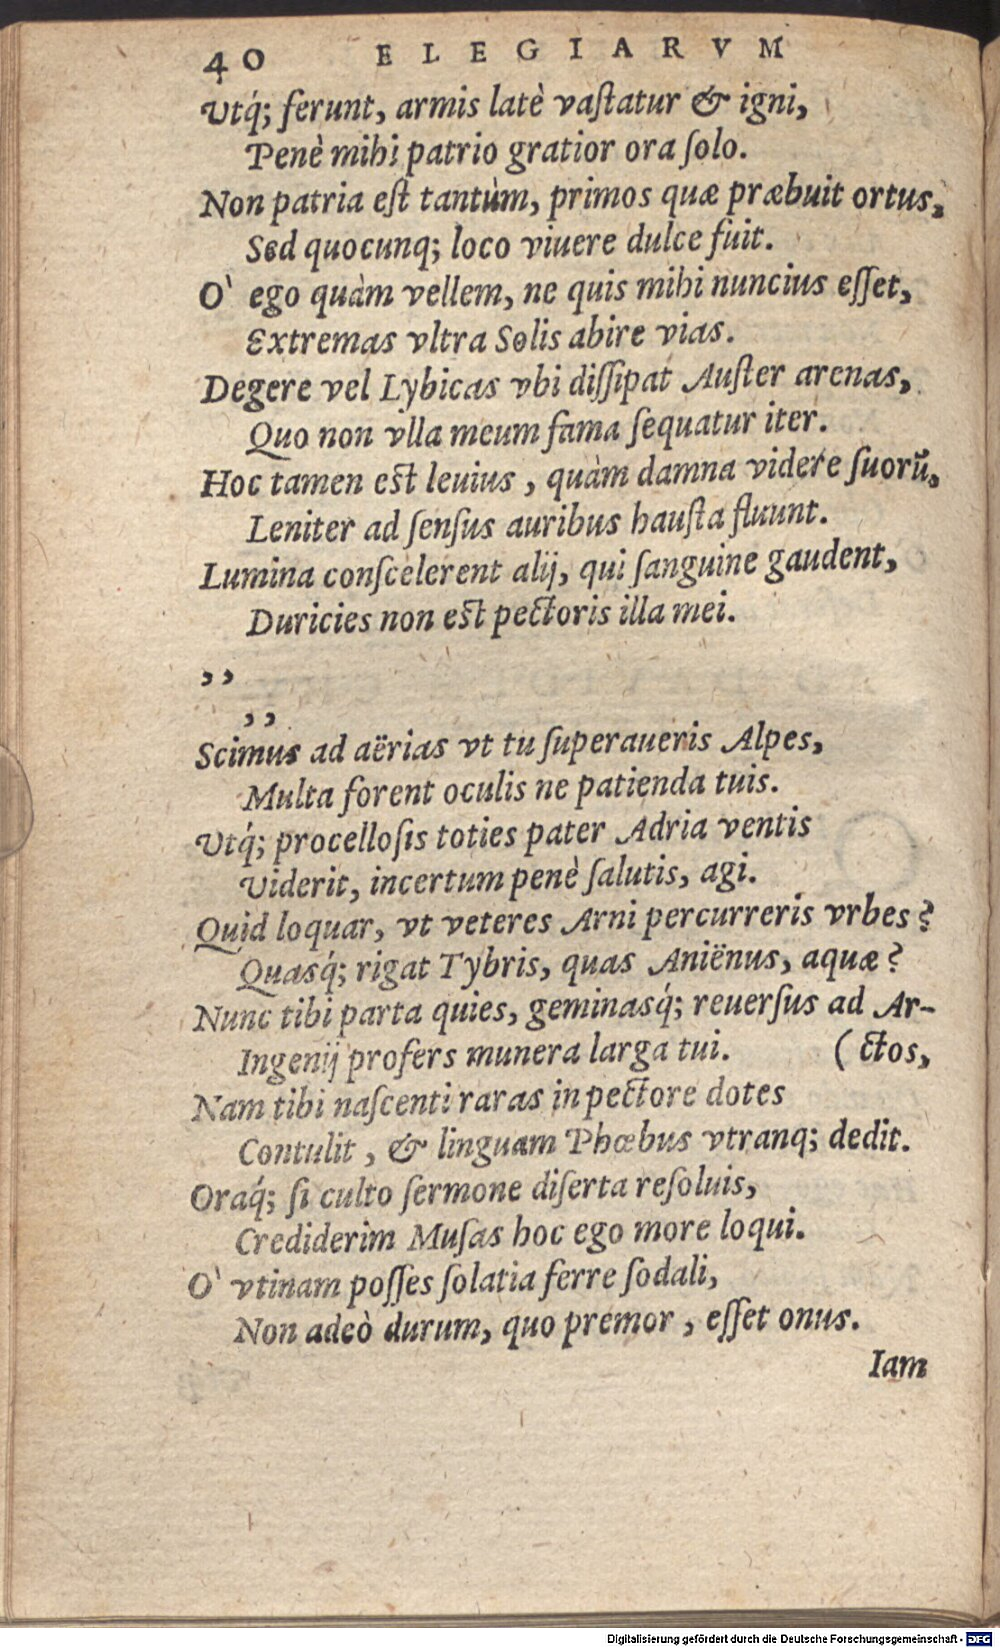 40 ELEGIARVM
Vtq́; ferunt, armis latè vaſtatur & igni,
Penè mihi patrio gratior ora ſolo.
Non patria eſt tantùm, primos quæ præbuit ortus,
Sed quocunq; loco viuere dulce fuit.
O` ego quàm vellem, ne quis mihi nuncius eſſet,
Extremas vltra Solis abire vias.
Degere vel Lybicas vbi diſſipat Auſter arenas,
Quo non vlla meum fama ſequatur iter.
Hoc tamen eſt leuius, quàm damna videre ſuorũ,
Leniter ad ſenſus auribus hauſta fluunt.
Lumina conſcelerent alij, qui ſanguine gaudent,
Duricies non eſt pectoris illa mei.
,,
,,
Scimus ad aërias vt tu ſuperaueris Alpes,
Multa forent oculis ne patienda tuis.
Vtq́; procelloſis toties pater Adria ventis
Viderit, incertum penè ſalutis, agi.
Quid loquar, vt veteres Arni percurreris vrbes?
Quasq́; rigat Tybris, quas Aniënus, aquæ?
Nunc tibi parta quies, geminasq́; reuerſus ad Ar-
Ingenij profers munera larga tui. (ctos,
Nam tibi naſcenti raras in pectore dotes
Contulit, & linguam Phœbus vtranq; dedit.
Oraq́; ſi culto ſermone diſerta reſoluis,
Crediderim Muſas hoc ego more loqui.
O` vtinam poſſes ſolatia ferre ſodali,
Non adeò durum, quo premor, eſſet onus.
Iam
Digitalisierung gefördert durch die Deutsche Forschungsgemeinschaft - DFG